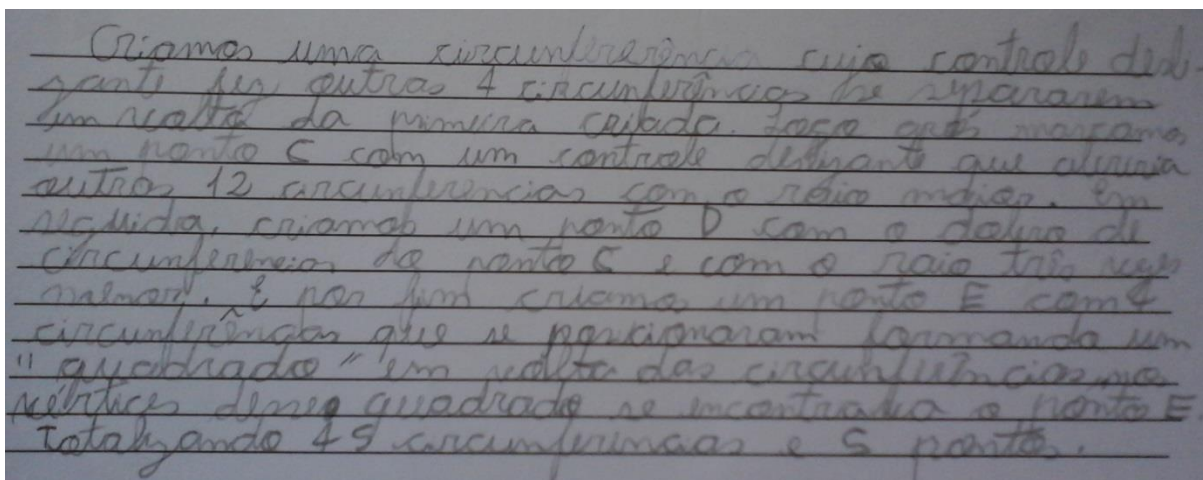 Criamos uma circunferência cujo controle desli-
zante fez outras 4 circunferências se separarem
em volta da primeira criada. Logo após marcamos
um ponto C com um controle deslizante que abriria
outras 12 circunferencias com o raio maior. Em
seguida, criamos um ponto D com o dobro de
circunferencias do ponto C e com o raio três vezes
menor. E por fim criamos um ponto E com 4
circunferências que se posicionaram formando um
"quadrado" em volta das circunferências, nos
vértices desse quadrado se encontrava o ponto E
totalizando 45 circunferencias e 5 pontos.